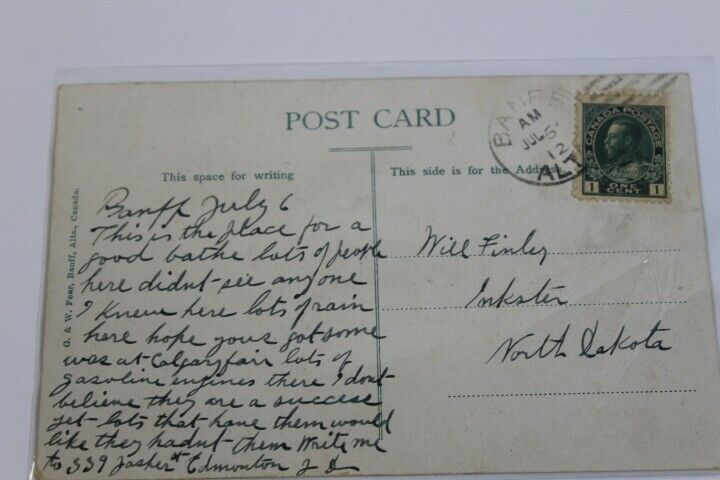 POST CARD
This space for writing
This side is for the Address
BANFF
AM
JUL 5
12
ALT
CANADA POSTAGE
1 ONE CENT 1
G. & W. Fear, Banff, Alta., Canada.
Banff July 6
This is the place for a
good bathe lots of people
here didnt see any one
I knew here lots of rain
here hope youv got some
was at Calgary fair lots of
gasoline engines there I dont
believe they are a success
yet lots that have them would
like they hadnt them Write me
to 339 Jasper Edmonton
Will Finley
Inkster
North Dakota